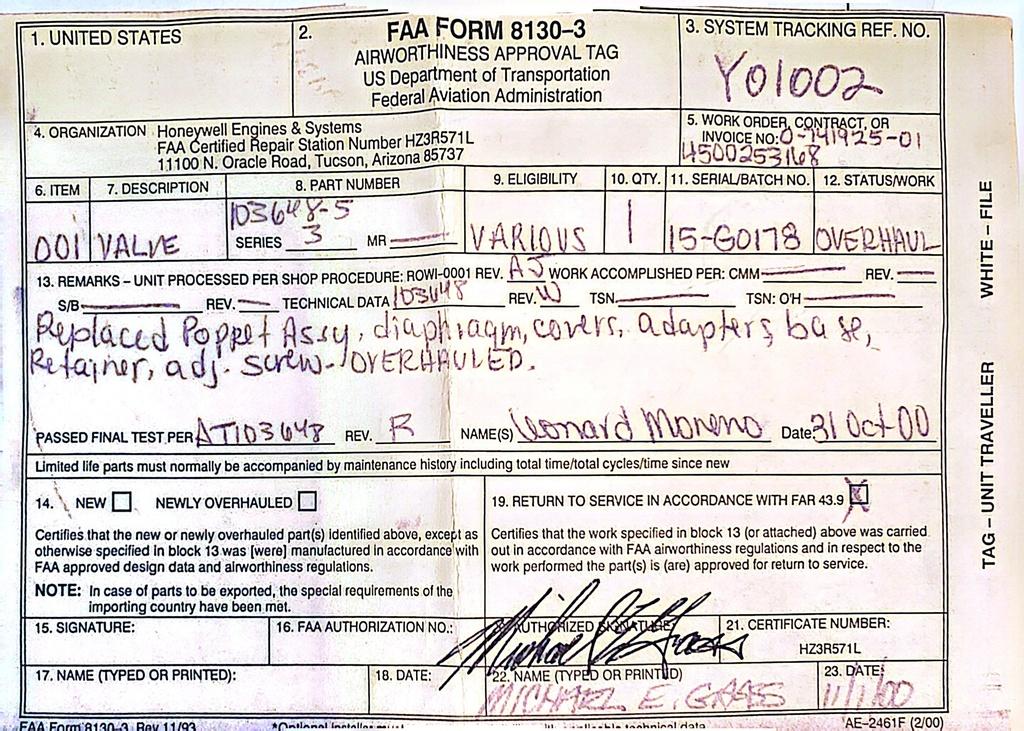 1. UNITED STATES
2.
FAA FORM 8130–3
AIRWORTHINESS APPROVAL TAG
US Department of Transportation
Federal Aviation Administration
3. SYSTEM TRACKING REF. NO.
Y01002
4. ORGANIZATION Honeywell Engines & Systems
FAA Certified Repair Station Number HZ3R571L
11100 N. Oracle Road, Tucson, Arizona 85737
5. WORK ORDER, CONTRACT, OR
INVOICE NO: 0-741925-01
4500253168
6. ITEM 7. DESCRIPTION 8. PART NUMBER 9. ELIGIBILITY 10. QTY. 11. SERIAL/BATCH NO. 12. STATUS/WORK
103648-5
001 VALVE SERIES 3 MR — VARIOUS 1 15-G0178 OVERHAUL
13. REMARKS – UNIT PROCESSED PER SHOP PROCEDURE: ROWI-0001 REV. AJ WORK ACCOMPLISHED PER: CMM — REV. —
S/B — REV. — TECHNICAL DATA 103648 REV. W TSN. — TSN: O'H —
Replaced Poppet Assy, diaphragm, covers, adapters, base,
Retainer, adj. screw. OVERHAULED.
PASSED FINAL TEST PER AT103648 REV. R NAME(S) Leonard Moreno Date 31 Oct 00
Limited life parts must normally be accompanied by maintenance history including total time/total cycles/time since new
14. NEW ☐ NEWLY OVERHAULED ☐
Certifies that the new or newly overhauled part(s) identified above, except as
otherwise specified in block 13 was [were] manufactured in accordance with
FAA approved design data and airworthiness regulations.
NOTE: In case of parts to be exported, the special requirements of the
importing country have been met.
19. RETURN TO SERVICE IN ACCORDANCE WITH FAR 43.9 ☒
Certifies that the work specified in block 13 (or attached) above was carried
out in accordance with FAA airworthiness regulations and in respect to the
work performed the part(s) is (are) approved for return to service.
15. SIGNATURE:
16. FAA AUTHORIZATION NO.:
AUTHORIZED SIGNATURE
21. CERTIFICATE NUMBER:
HZ3R571L
17. NAME (TYPED OR PRINTED):
18. DATE:
22. NAME (TYPED OR PRINTED)
MICHAEL E. GAAS
23. DATE:
11/1/00
FAA Form 8130–3 Rev 11/93
*Optional installer must
applicable technical data
AE-2461F (2/00)
TAG – UNIT TRAVELLER WHITE – FILE